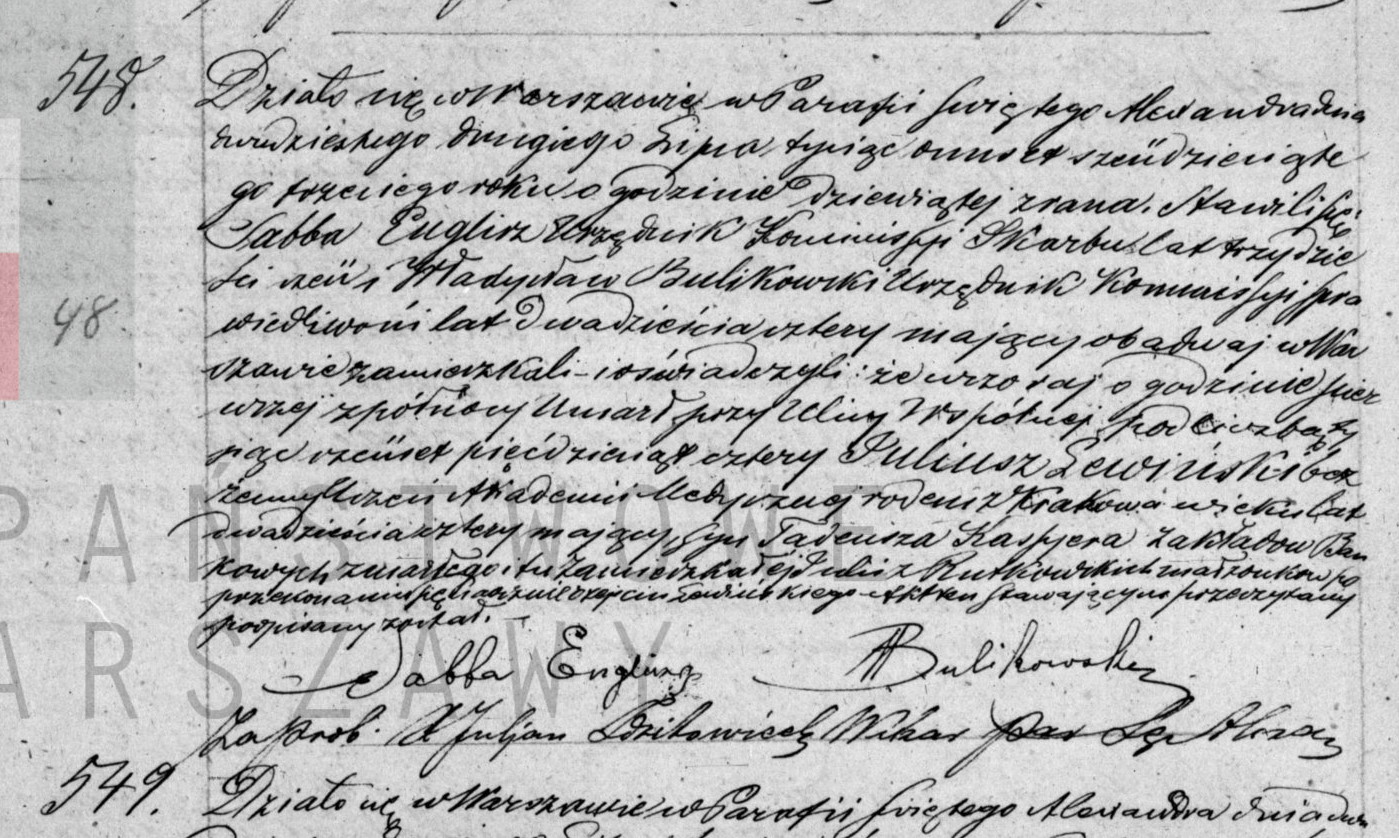 548. Działo się w Warszawie w Parafii świętego Alexandra dnia
dwudziestego drugiego Lipca tysiąc ośmset sześćdziesiąte
go trzeciego roku o godzinie dziewiątej zrana. Stawili się:
Sabba Englisz Urzędnik Kommissyi Skarbu lat trzydzie
ści sześć i Władysław Bulikowski Urzędnik Kommissyi Spra
48
wiedliwości lat dwadzieścia cztery mający obadwaj w War
szawie zamieszkali – i oświadczyli: że wczoraj o godzinie pier
wszej z północy Umarł przy Ulicy Wspólnej pod liczbą ty
siąc sześćset pięćdziesiąt cztery Juliusz Lewiński bez
żenny Uczeń Akademii Medycznej rodem z Krakowa wieku lat
dwadzieścia cztery mający, syn Tadeusza Kassyera Zakładów Ban
kowych zmarłego i tu zamieszkałej Julii z Rutkowskich małżonków po
przekonaniu się o zejściu Lewińskiego Akt ten stawającym przeczytany
podpisany został. –
Sabba Englisz Bulikowski
Za Prob. X Juljan Wikar par Sgo Alexan
549. Działo się w Warszawie w Parafii świętego Alexandra dnia dwu
PAŃSTWOWE
WARSZAWY